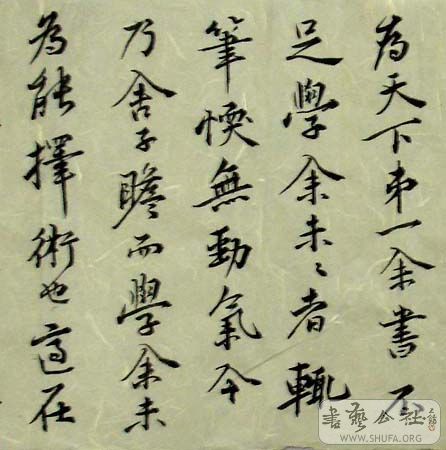 為天下弟一余書不
足學余未〻者輒
筆愞無勁氣今
乃舍子瞻而學余未
為能擇術也適在
書藝公社
WWW.SHUFA.ORG